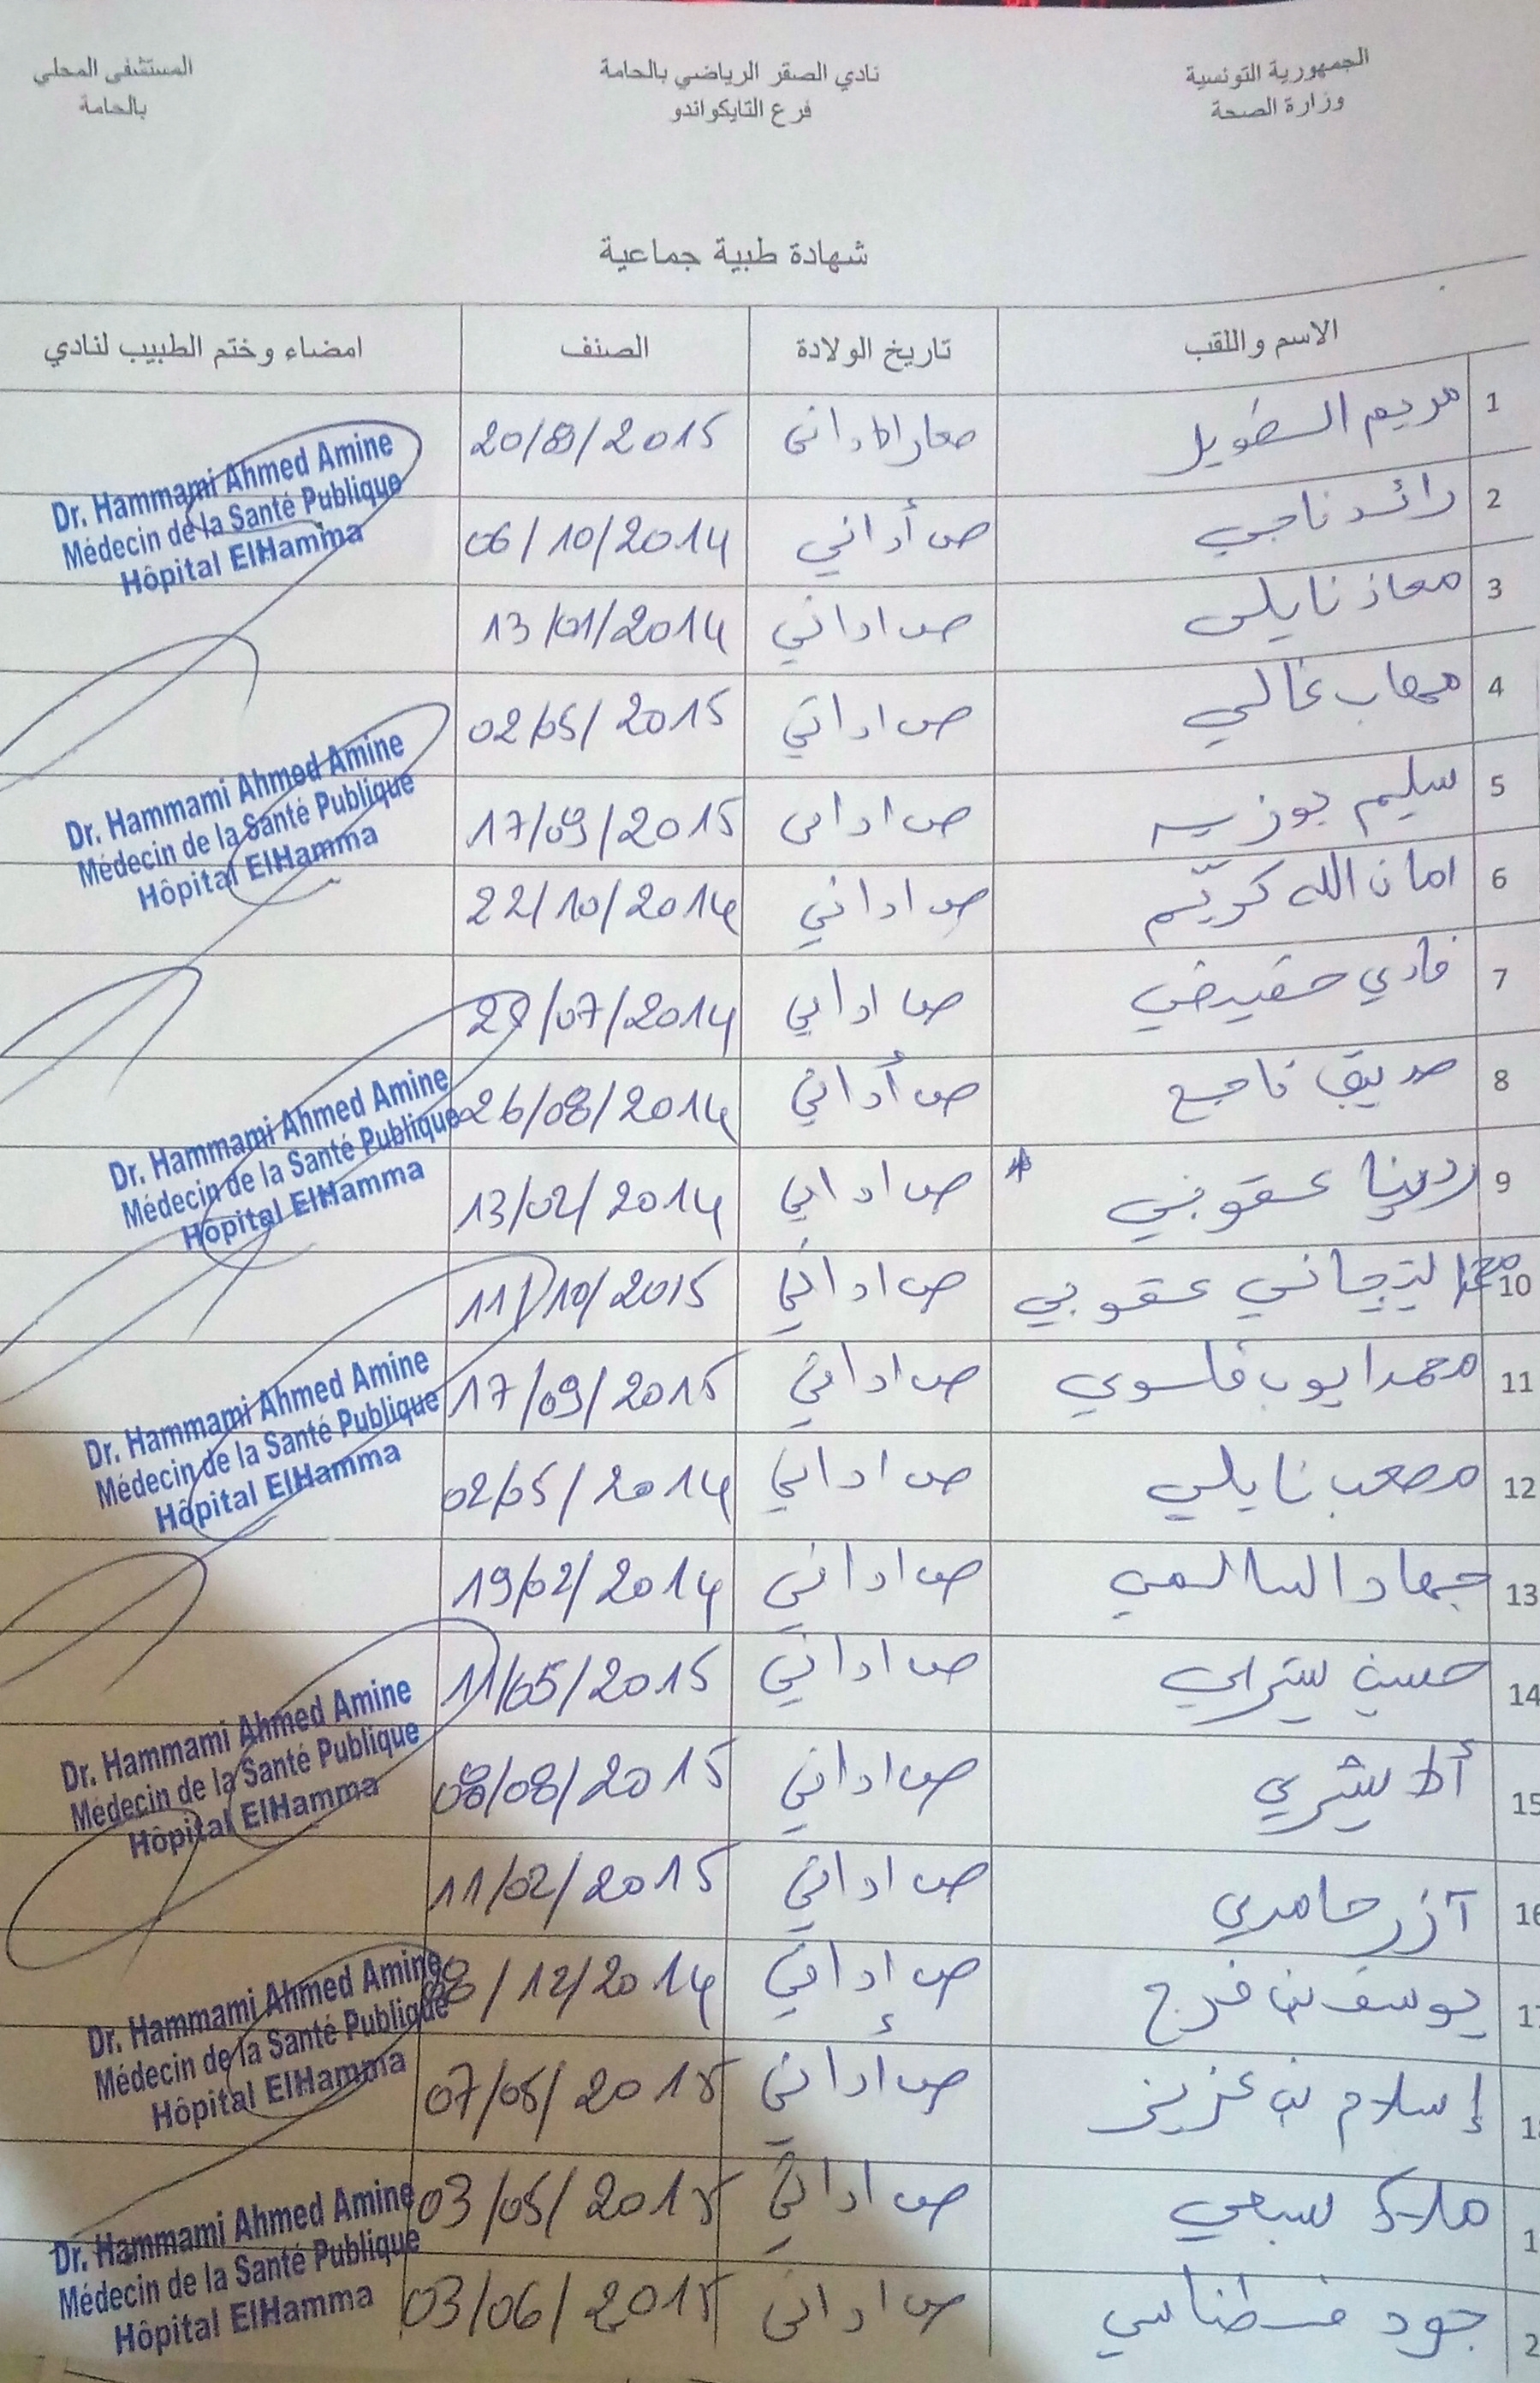 الجمهورية التونسية
وزارة الصحة
نادي الصقر الرياضي بالحامة
فرع التايكواندو
المستشفى المحلي
بالحامة
شهادة طبية جماعية
الاسم واللقب تاريخ الولادة الصنف امضاء وختم الطبيب لنادي
1 مريم الطويل 2015
2 رائد ناجي ص أداني 06/10/2014
3 معاذ نايلي ص اداني 13/01/2014
4 مهاب غالي ص اداني 02/05/2015
5 سليم ص اداني 17/09/2015
6 امان الله كريّم ص اداني 22/10/2014
7 فادي ص اداني /07/2014
8 صديق ناجح ص أداني 26/08/2014
9 عقوبي ص اداني 13/02/2014
10 محمد التيجاني عقوبي ص اداني 11/10/2015
11 محمد ايوب ص اداني 17/09/2015
12 مصعب نايلي ص اداني 02/05/2014
13 جهاد السالمي ص اداني 19/02/2014
14 حسين ص اداني 11/05/2015
15 ص اداني 08/08/2015
16 آزر حامدي ص اداني 11/02/2015
يوسف بن فرج ص إداني /12/2014
إسلام بن عزيز ص إداني 07/05/2015
ملاك سبعي ص اداني 03/05/2015
جود ص اداني 03/06/2015
Dr. Hammami Ahmed Amine
Médecin de la Santé Publique
Hôpital ElHamma
Dr. Hammami Ahmed Amine
Médecin de la Santé Publique
Hôpital ElHamma
Dr. Hammami Ahmed Amine
Médecin de la Santé Publique
Hôpital ElHamma
Dr. Hammami Ahmed Amine
Médecin de la Santé Publique
Hôpital ElHamma
Dr. Hammami Ahmed Amine
Médecin de la Santé Publique
Hôpital ElHamma
Dr. Hammami Ahmed Amine
Médecin de la Santé Publique
Hôpital ElHamma
Dr. Hammami Ahmed Amine
Médecin de la Santé Publique
Hôpital ElHamma